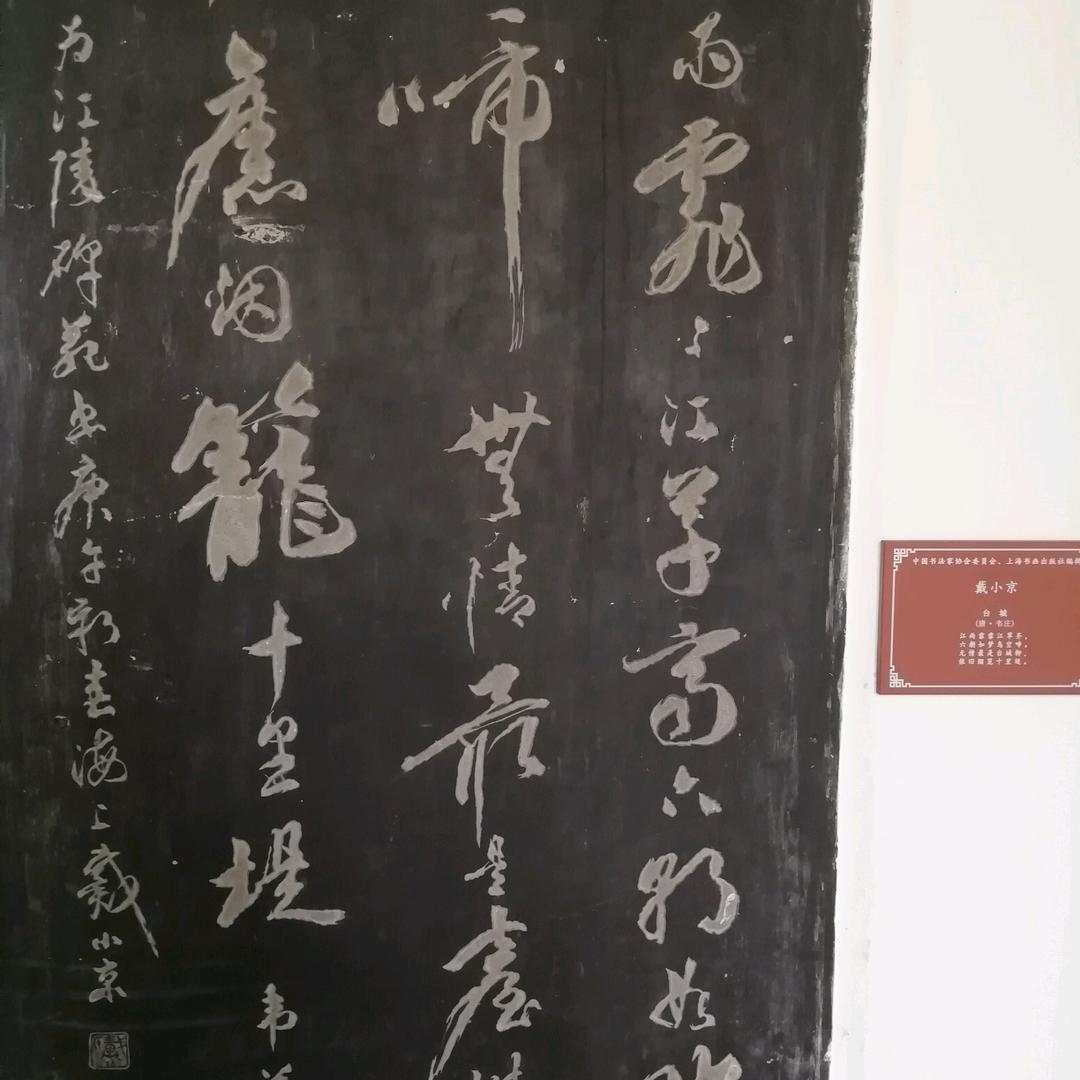 雨霏々江草齊六朝如
啼無情最是臺
舊烟籠十里堤 韦
为江陵碑苑书庚午新春海上戴小京
中国书法家协会委员会、上海书画出版社编
戴小京
台 城
(唐·韦庄)
江雨霏霏江草齐,
六朝如梦鸟空啼。
无情最是台城柳,
依旧烟笼十里堤。